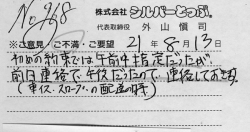 No 968
株式会社 シルバーとっぷ
代表取締役 外山慎司
※ご意見・ご不満・ご要望 21年8月13日
初めの約束では午前中指定だったが、
前日連絡で午後だったので、連絡してお
(車イス・スロープの配達の時)